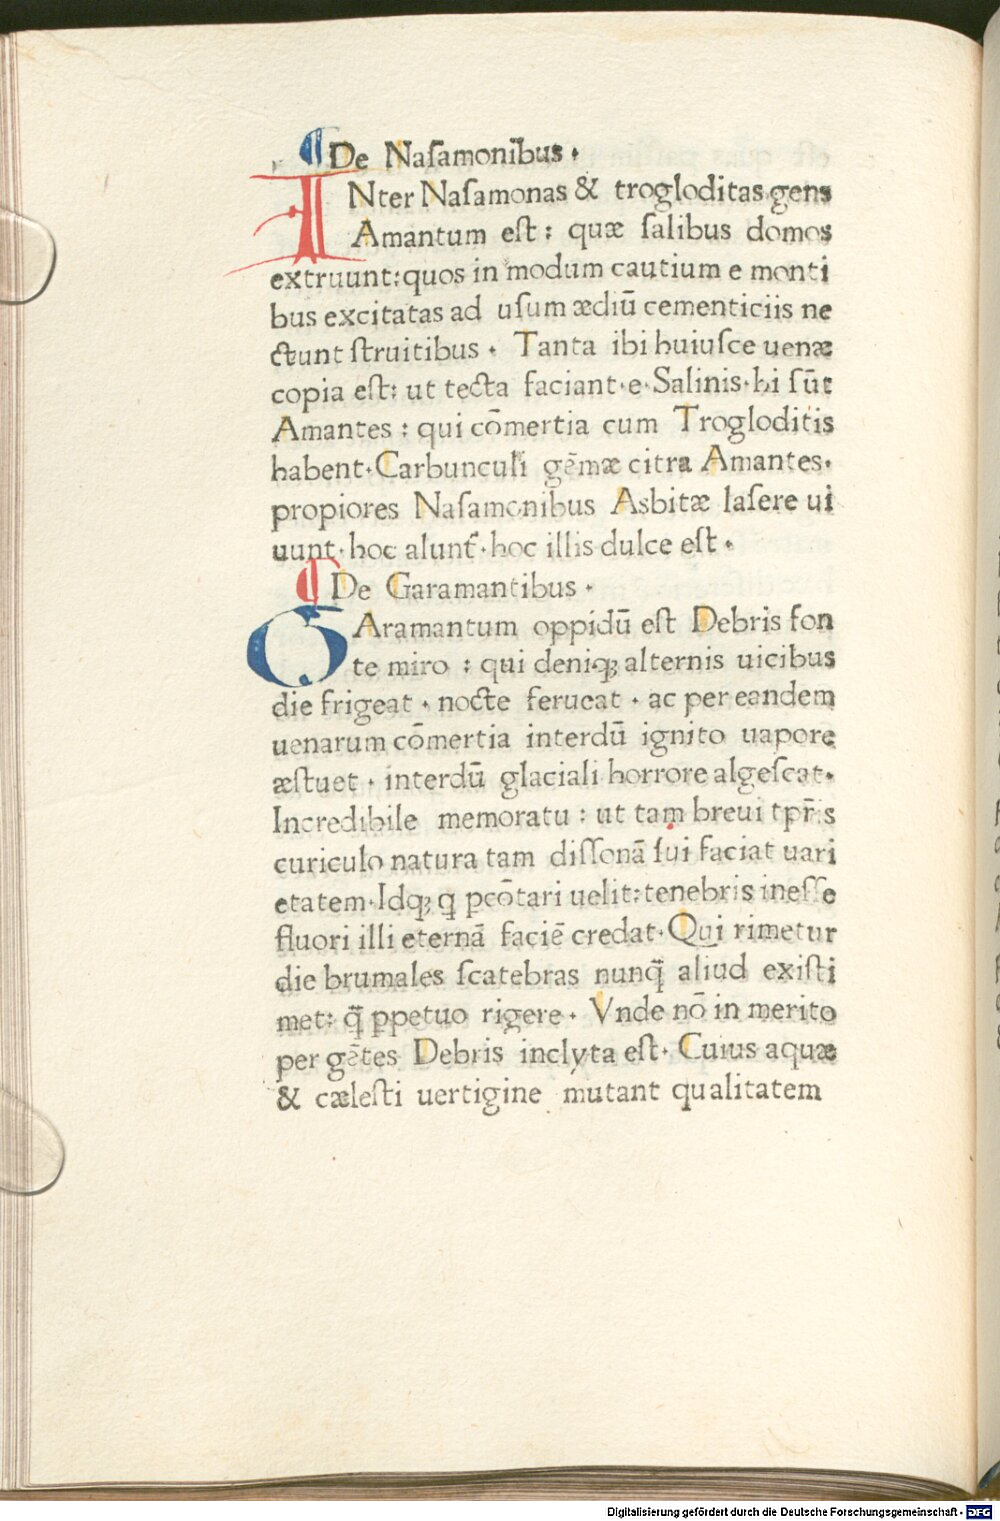 ¶ De Naſamonibus ·
INter Naſamonas & trogloditas gens
Amantum eſt : quæ ſalibus domos
extruunt: quos in modum cautium e monti
bus excitatas ad uſum ædiū cementiciis ne
ctunt ſtruitibus · Tanta ibi huiuſce uenæ
copia eſt: ut tecta faciant·e·Salinis·hi ſūt
Amantes : qui cōmertia cum Trogloditis
habent·Carbunculi gēmæ citra Amantes·
propiores Naſamonibus Asbitæ laſere ui
uunt·hoc alunt᷒·hoc illis dulce eſt ·
¶ De Garamantibus ·
GAramantum oppidū eſt Debris fon
te miro : qui deniqꝫ alternis uicibus
die frigeat · nocte ferueat · ac per eandem
uenarum cōmertia interdū ignito uapore
æſtuet · interdū glaciali horrore algeſcat·
Incredibile memoratu : ut tam breui tpr̄is
curiculo natura tam diſſonā ſui faciat uari
etatem·Idqꝫ q pcōtari uelit: tenebris ineſſe
fluori illi eternā faciē credat·Qui rimetur
die brumales ſcatebras nunq̄ aliud exiſti
met: q̄ ppetuo rigere · Vnde nō in merito
per gētes Debris inclyta eſt· Cuius aquæ
& cæleſti uertigine mutant qualitatem
Digitalisierung gefördert durch die Deutsche Forschungsgemeinschaft - DFG